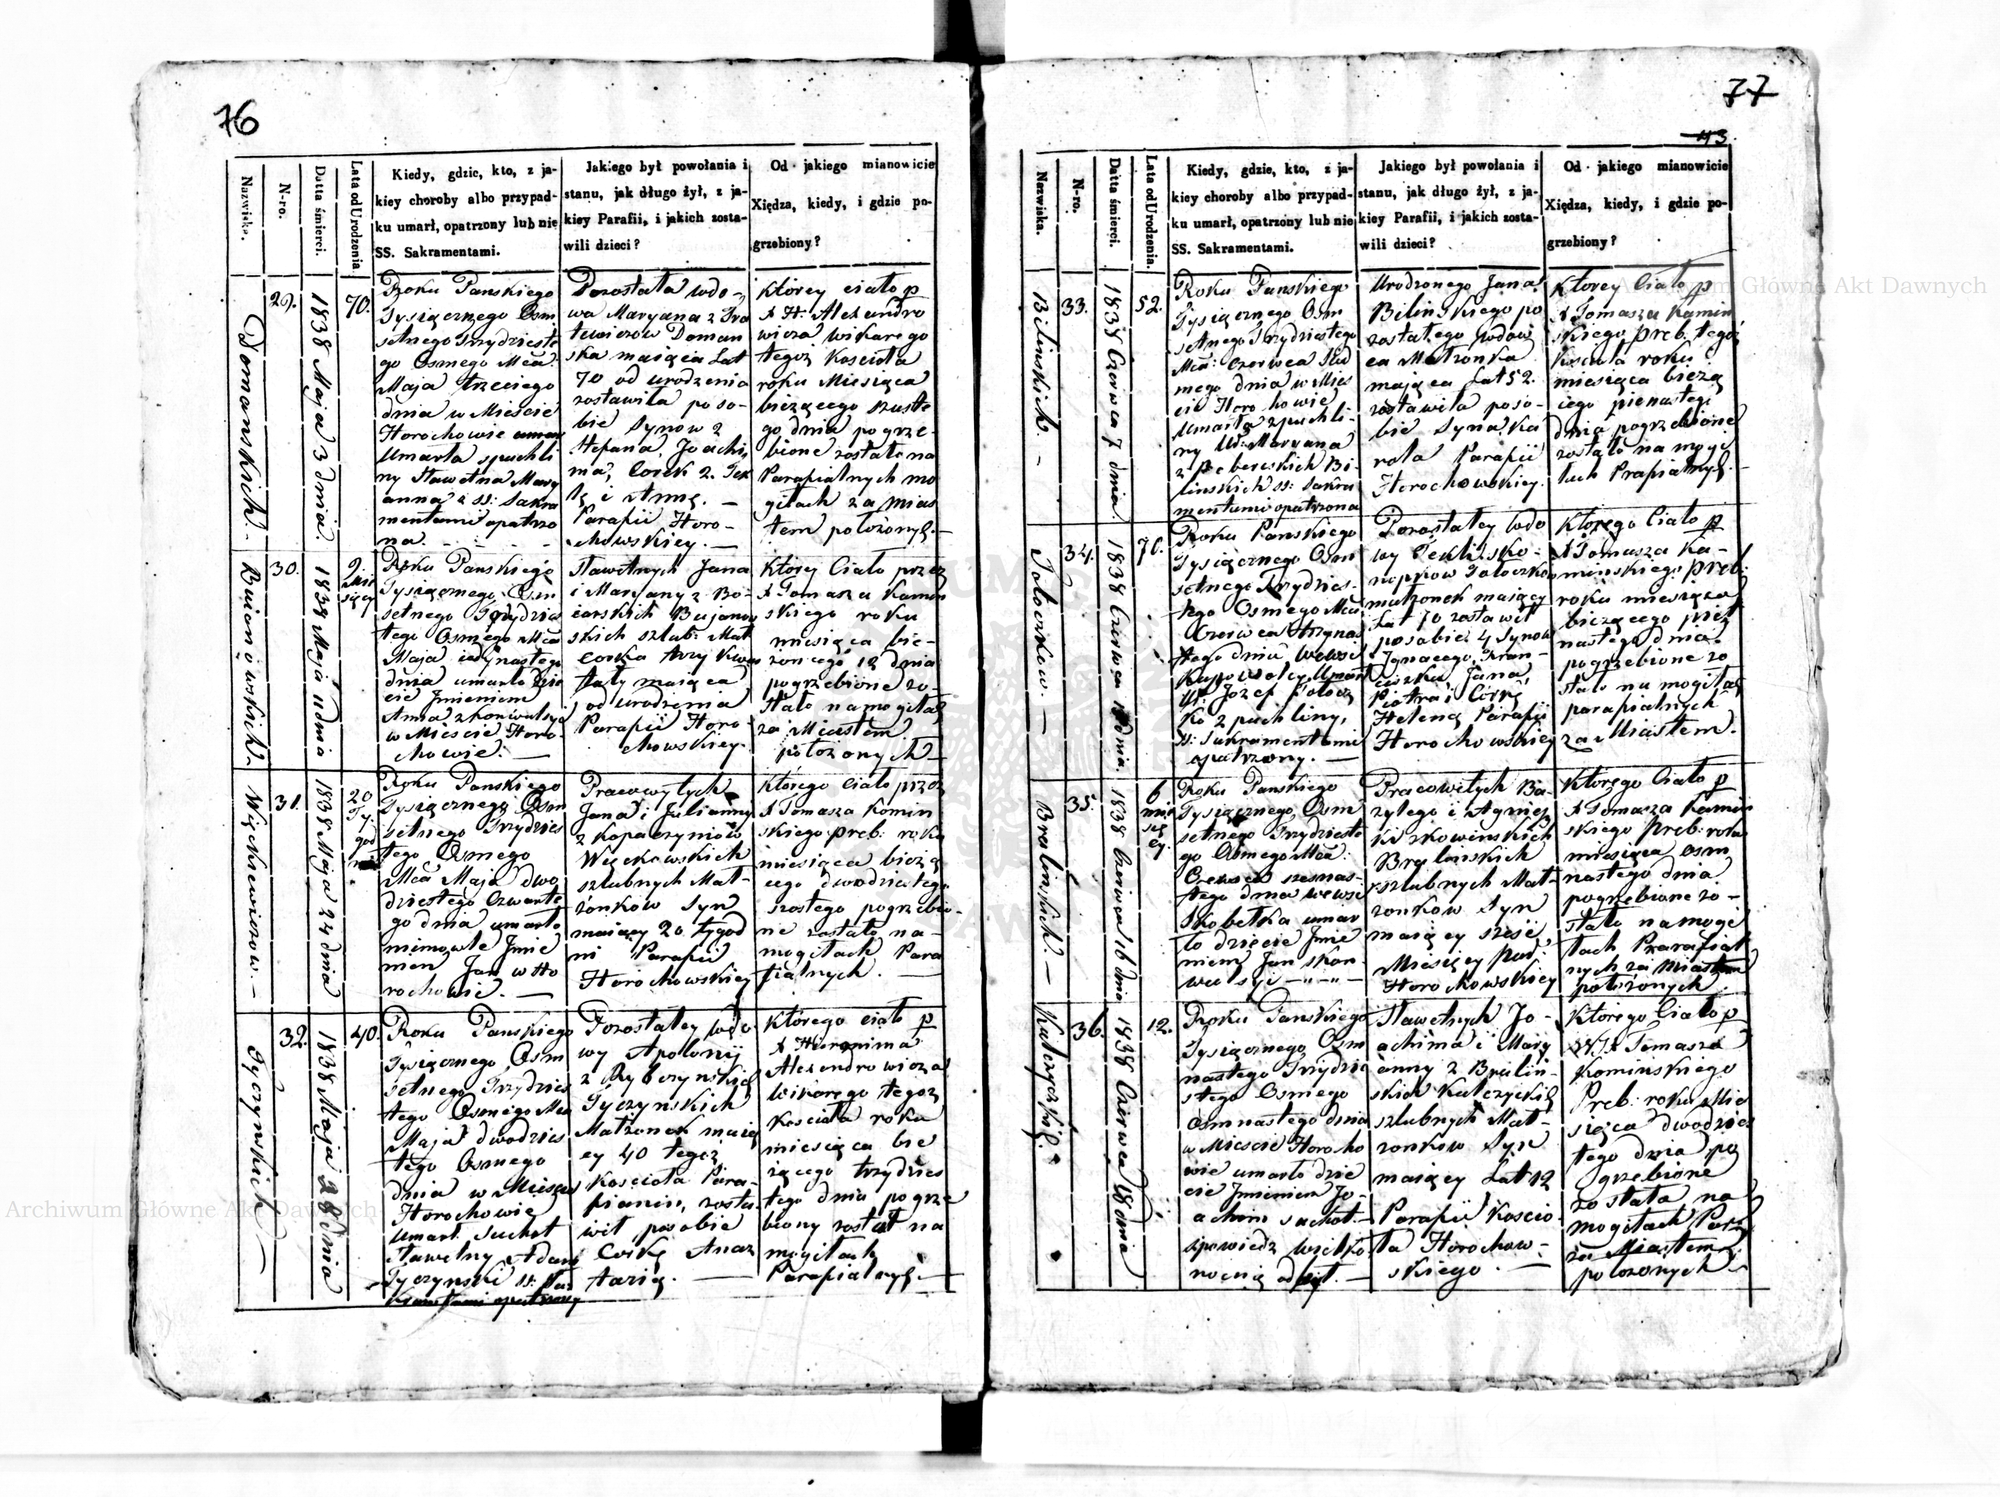 76
Nazwiska.
N-ro.
Datta śmierci.
Lata od Urodzenia
Kiedy, gdzie, kto, z ja-
kiey choroby albo przypad-
ku umarł, opatrzony lub nie
SS. Sakramentami.
Jakiego był powołania i
stanu, jak długo żył, z ja-
kiey Parafii, i jakich zosta-
wili dzieci?
Od jakiego mianowicie
Xiędza, kiedy, i gdzie po-
grzebiony?
Domanskich.
29.
1838 Maja 3 dnia.
70.
Roku Panskiego
Tysiącznego Osm
setnego Trzydzieste
go Osmego Mca
Maja trzeciego
dnia w Mieście
Horochowie
Umarła spuchli
ny Sławetna Mary
anna SS: Sakra
mentami opatrzo
na.
Pozostała wdo-
wa Maryana z
Doman
ska maiąca Lat
70 od urodzenia
zostawiła po so-
bie Synow 2
Stefana, Joachi
ma, Corek 2.
i Annę.
Parafii Horo-
chowskiey.
Ktorey ciało p
X H. Alexandro
wicza wikarego
tegoż Kościoła
roku Miesiąca
bieżącego szuste
go dnia pogrze-
bione zostało na
Parafialnych mo
giłach za mias
tem położonych.
Buianowskich.
30.
1838 Maja 11 dnia
9. Mie
sięcy
Roku Panskiego
Tysiącznego Osm
setnego Trzydzies
tego Osmego Mca
Maja iedynastego
dnia umarło dzie
cie Jmieniem
Anna z konwulsyi
w Mieście Horo-
chowie.
Sławetnych Jana
i Maryany z Bo-
ciarskich Bujanow
skich szlub: Mał
corka trzy kwar
tały maiąca
od urodzenia
Parafii Horo-
chowskiey.
Ktorey Ciało przez
X Tomasza Kamin
skiego roku
miesiąca bie-
żoncego 12 dnia
pogrzebione zo-
stało na mogiłach
za Miastem
położonych
Więckiewiczow.
31.
1838 Maja 24 dnia
20
Ty
god
ni
Roku Panskiego
Tysiącznego Osm
setnego Trzydzies
tego Osmego
Mca Maja dwo
dziestego Czwarte
go dnia umarło
niemowle Jmie
niem Jan w Ho
rochowie.
Pracowytych
Jana i Julianny
z Kopaczyniow
Więckowskich
szlubnych Mał-
żonkow Syn
maiący 20 tygod
ni Parafii
Horochowskiey
Ktorego Ciało przez
X Tomasza Kamin
skiego Preb: roku
miesiąca bieżą
cego dwodziestego
szostego pogrzebio-
ne zostało na
mogiłach Para
fialnych.
Tyczynskich
32.
1838 Maja 28 dnia
40.
Roku Panskiego
Tysiącznego Osm
setnego Trzydzies
tego Osmego Mca
Maja dwodzies
tego Osmego
dnia w Mieście
Horochowie
Umarł suchot
Sławetny Adam
Tyczynski SS: Sa
kramentami opatrzony
Pozostałey wdo
wy Apolonij
z Rybczynskich
Tyczynskich
Małżonek maią
cy 40 tegoż
Kościoła Para-
fianin, zosta
wił posobie
Corkę Anas
tazię.
Ktorego ciało p
X Hieronima
Alexandrowicza
wikarego tegoż
Kościoła roku
miesiąca bie
żącego trzydzies
tego dnia pogrze
biony został na
mogiłach
Parafialnych.
77
43.
Nazwiska.
N-ro.
Datta śmierci.
Lata od Urodzenia.
Kiedy, gdzie, kto, z ja-
kiey choroby albo przypad-
ku umarł, opatrzony lub nie
SS. Sakramentami.
Jakiego był powołania i
stanu, jak długo żył, z ja-
kiey Parafii, i jakich zosta-
wili dzieci?
Od jakiego mianowicie
Xiędza, kiedy, i gdzie po-
grzebiony?
Bilinskich.
33.
1838 Czerwca 7 dnia
52.
Roku Panskiego
Tysiącznego Osm
setnego Trzydziestego
Mca: Czerwca Siud
mego dnia w Mies
cie Horochowie
Umarła zpuchli-
ny Ur: Maryana
z Bi-
linskich SS: Sakra
mentami opatrzona
Urodzonego Jana
Bilinskiego po
zostałego wdow
ca Małżonka
maiąca Lat 52.
zostawiła poso-
bie Syna Ka
rola Parafii
Horochowskiey.
Ktorey Ciało p
X Tomasza Kamin
skiego Preb. tegoż
Kościoła roku
miesiąca bieżą
cego pienastego
dnia pogrzebione
zostało na mogi
łach
Połoczkow.
34.
1838 Czerwca dnia
70.
Roku Panskiego
Tysiącznego Osm
setnego Trzydzies-
tego Osmego Mca
Czerwca
tego dnia wewsi
Umarł
Ur. Jozef Połocz
ko z puchliny,
SS: Sakramentami
opatrzony.
Pozostałey wdo
wy Teklii Sko-
Połoczkow
małżonek maiący
Lat 70 zostawił
posobie 4 Synow
Ignacego, Fran-
ciszka Jana,
Piotra i Corkę
Helenę Parafii
Horochowskiey
Ktorego Ciało p
X Tomasza Ka-
minskiego Preb:
roku miesiąca
bieżącego pięt
nastego dnia
pogrzebione zo
stało na mogiłach
parafialnych
za Miastem.
Bralinskich.
35.
1838 Czerwca 16 dnia
6
mie
się
cy.
Roku Panskiego
Tysiącznego Osm
setnego Trzydzieste
go Osmego Mca:
Czerwca szesnas-
tego dnia wewsi
Skobełka umar
ło dziecie Jmie
niem Jan skon-
wulsyi
Pracowitych Ba-
zylego i Agniesz
ki
Bralinskich
szlubnych Mał-
żonkow Syn
maiący sześć
Miesięcy Par:
Horochowskiey
Ktorego Ciało p
X Tomasza Kamin
skiego Preb: roku
miesiąca osm
nastego dnia
pogrzebione zo-
stało na mogi
łach Parafial
nych za Miastem
położonych
Kulczyckich.
36.
1838 Czerwca 18 dnia
12.
Roku Panskiego
Tysiącznego Osm
nastego Trzydzie
stego Osmego
Osmnastego dnia
w Mieście Horocho
wie umarło dzie
cie Jmieniem Jo-
achim suchot.
Spowiedz wielko
nocną odbył.
Sławetnych Jo-
achima i Mary
anny z Bralin-
skich Kulczyckich
szlubnych Mał-
żonkow Syn
maiący Lat 12
Parafii Koscio
ła Horochow-
skiego.
Ktorego Ciało p
X Tomasza
Kaminskiego
Preb: roku Mie
siąca dwodzies
tego dnia po
grzebione
zostało na
mogiłach Para
za Miastem
położonych
Archiwum Główne Akt Dawnych
Archiwum Główne Akt Dawnych